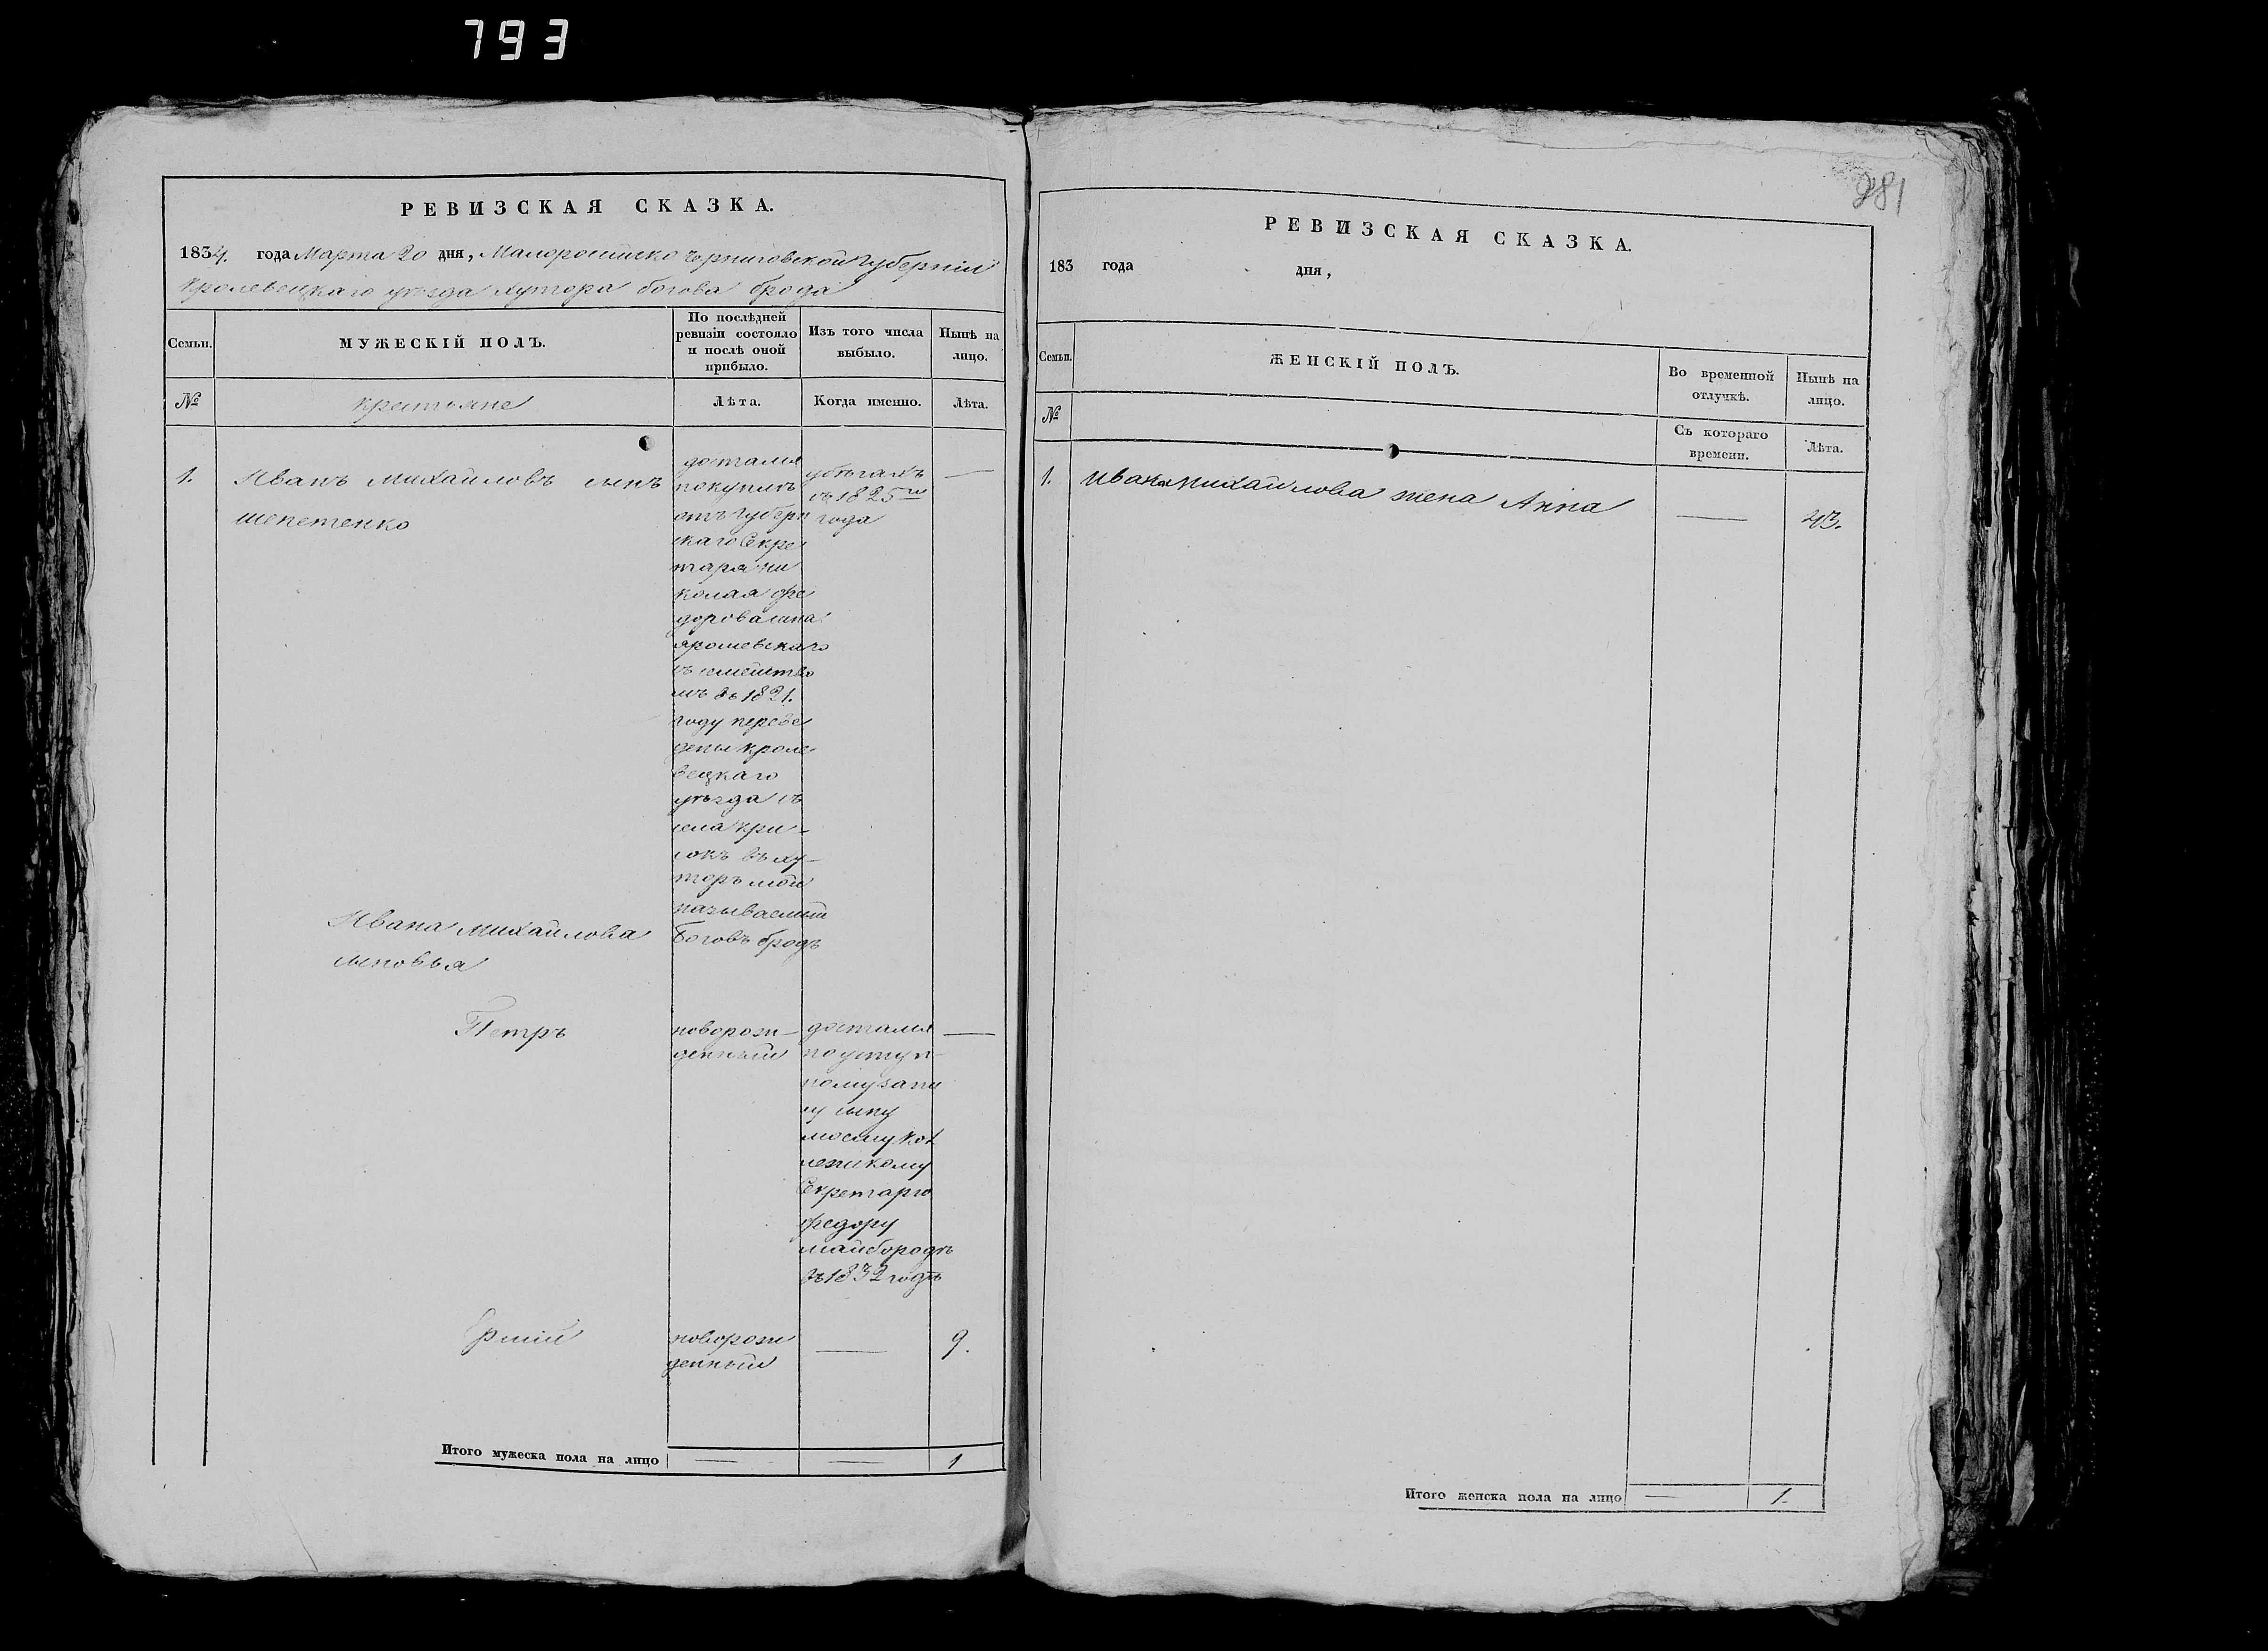 793
281
РЕВИЗСКАЯ СКАЗКА.
1834. года Марта 20 дня, Малоросійско Чѣрниговской Губерніи
Кролевецкаго уѣзда хутора богова брода
Семьи.
МУЖЕСКІЙ ПОЛЪ.
По послѣдней
ревизіи состояло
и послѣ оной
прибыло.
Изъ того числа
выбыло.
Нынѣ на
лицо.
№
крестьяне
Лѣта.
Когда именно.
Лѣта.
1. Иванъ Михайловъ сынъ
шепетенко
достался
покупкъ
отъ Губерн
скаго Секре
таря Ни
колая Фе
дорова сына
ярошевскаго
съ семейство
мъ въ 1821.
году переве
дены кроле
вецкаго
уѣзда съ
села кри-
сокъ въ ху-
торъ мой
называемый
Боговъ бродъ
убѣгахъ
съ 1825го
года
—
Ивана Михайлова
сыновья
Петръ
новорож-
денный
достался
по уступ-
ному запи
су сыну
моему Кол
лежскому
Секретарю
Федору
майбородѣ
въ 1832 годѣ
—
Ермій
новорож
денный
—
9.
Итого мужеска пола на лицо — — 1
РЕВИЗСКАЯ СКАЗКА.
183 года дня,
Семьи.
ЖЕНСКІЙ ПОЛЪ.
Во временной
отлучкѣ.
Нынѣ на
лицо.
№
Съ котораго
времени.
Лѣта.
1. Ивана Михайлова жена Анна — 43.
Итого женска пола на лицо — 1.